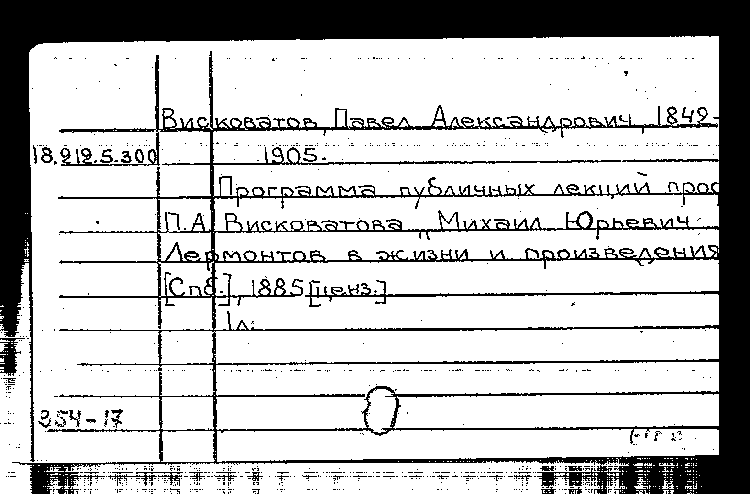 Висковатов, Павел Александрович, 1842-
18.212.5.300 1905.
Программа публичных лекций проф
П.А. Висковатова „Михаил Юрьевич
Лермонтов в жизни и произведения
[Спб.], 1885 [ценз.]
1 л.
354-17